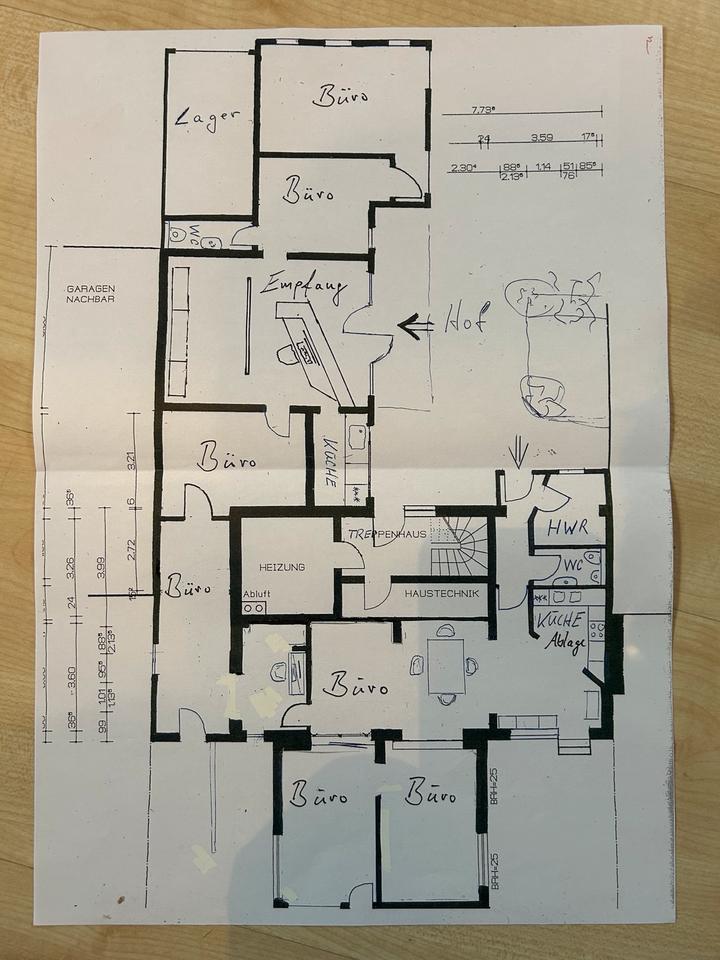 Lager
Büro
7.73⁵
24 3.59 17⁵
2.30⁴ 88⁵ 1.14 51 85⁵
2.13⁵ 76
Büro
WC
Empfang
GARAGEN
NACHBAR
Hof
Büro
KÜCHE
3.21
36⁵
6
TREPPENHAUS
HWR
HEIZUNG
2.72
3.99
3.26
WC
Büro
Abluft
HAUSTECHNIK
24
KÜCHE
Ablage
88⁵
2.13⁵
Büro
3.60
95⁵
1.01
1.13⁵
36⁵
99
Büro
Büro
BRH=25
BRH=25